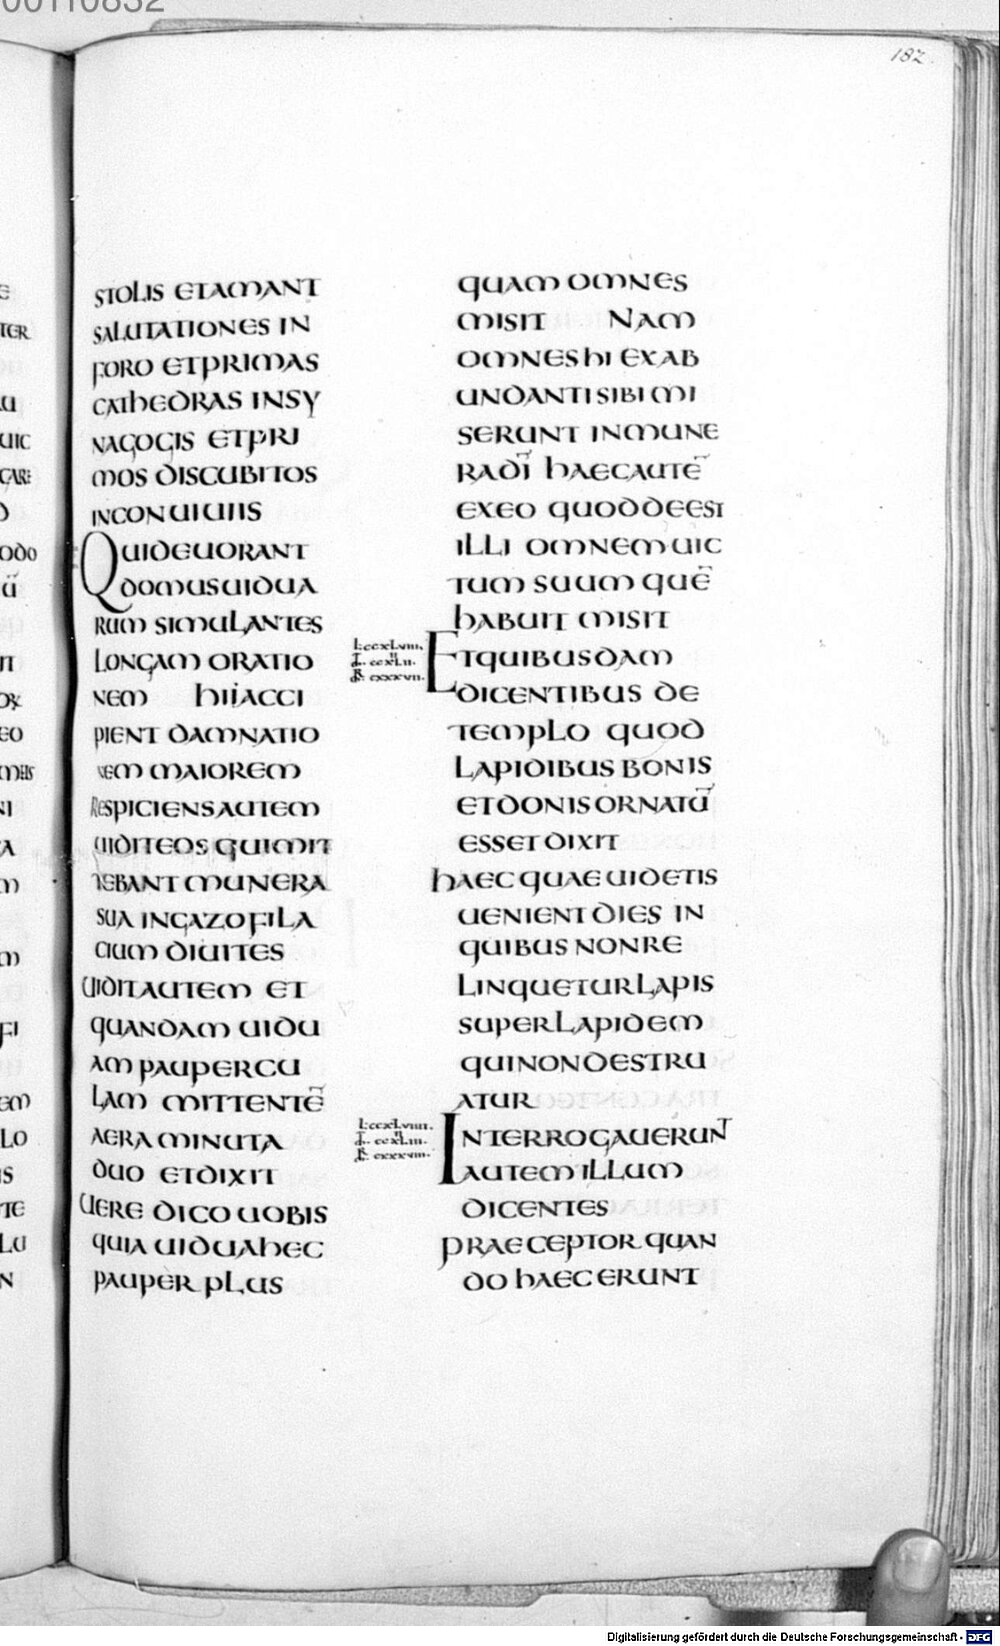 00110832
182
STOLIS ETAMANT
SALUTATIONES IN
FORO ETPRIMAS
CATHEDRAS INSY
NAGOGIS ETPRI
MOS DISCUBITOS
INCONUIUIIS
QUIDEUORANT
DOMUSUIDUA
RUM SIMULANTES
LONGAM ORATIO
NEM HIIACCI
PIENT DAMNATIO
NEM MAIOREM
RESPICIENSAUTEM
UIDITEOS QUIMIT
TEBANT MUNERA
SUA INGAZOFILA
CIUM DIUITES
UIDITAUTEM ET
QUANDAM UIDU
AM PAUPERCU
LAM MITTENTE̅
AERA MINUTA
DUO ETDIXIT
UERE DICO UOBIS
QUIA UIDUAHEC
PAUPER PLUS
QUAM OMNES
MISIT NAM
OMNES HI EXAB
UNDANTI SIBI MI
SERUNT INMUNE
RADI̅ HAECAUTE̅
EXEO QUODDEEST
ILLI OMNEM UIC
TUM SUUM QUE̅
HABUIT MISIT
L. ccxLviii.
ETQUIBUSDAM
DICENTIBUS DE
TEMPLO QUOD
LAPIDIBUS BONIS
ETDONIS ORNATU̅
ESSET DIXIT
HAEC QUAE UIDETIS
UENIENT DIES IN
QUIBUS NONRE
LINQUETUR LAPIS
SUPER LAPIDEM
QUINONDESTRU
ATUR
L. ccxLviiii.
INTERROGAUERUNT
AUTEM ILLUM
DICENTES
PRAECEPTOR QUAN
DO HAEC ERUNT
Digitalisierung gefördert durch die Deutsche Forschungsgemeinschaft - DFG